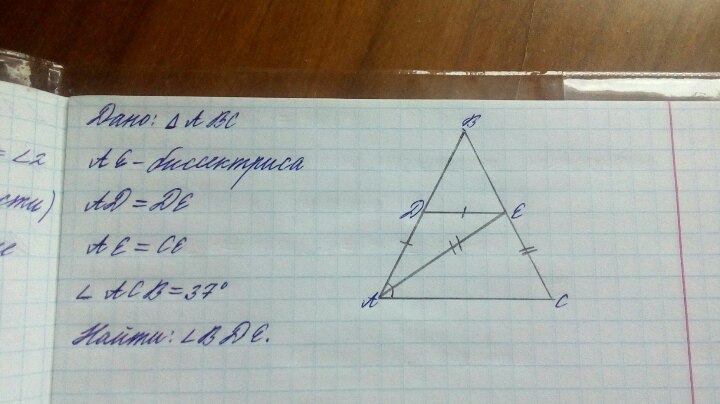 Дано: △ABC
= ∠2
AE - биссектриса
сти)
AD = DE
AE = CE
∠ACB = 37°
Найти: ∠BDE.
B
D
E
A
C